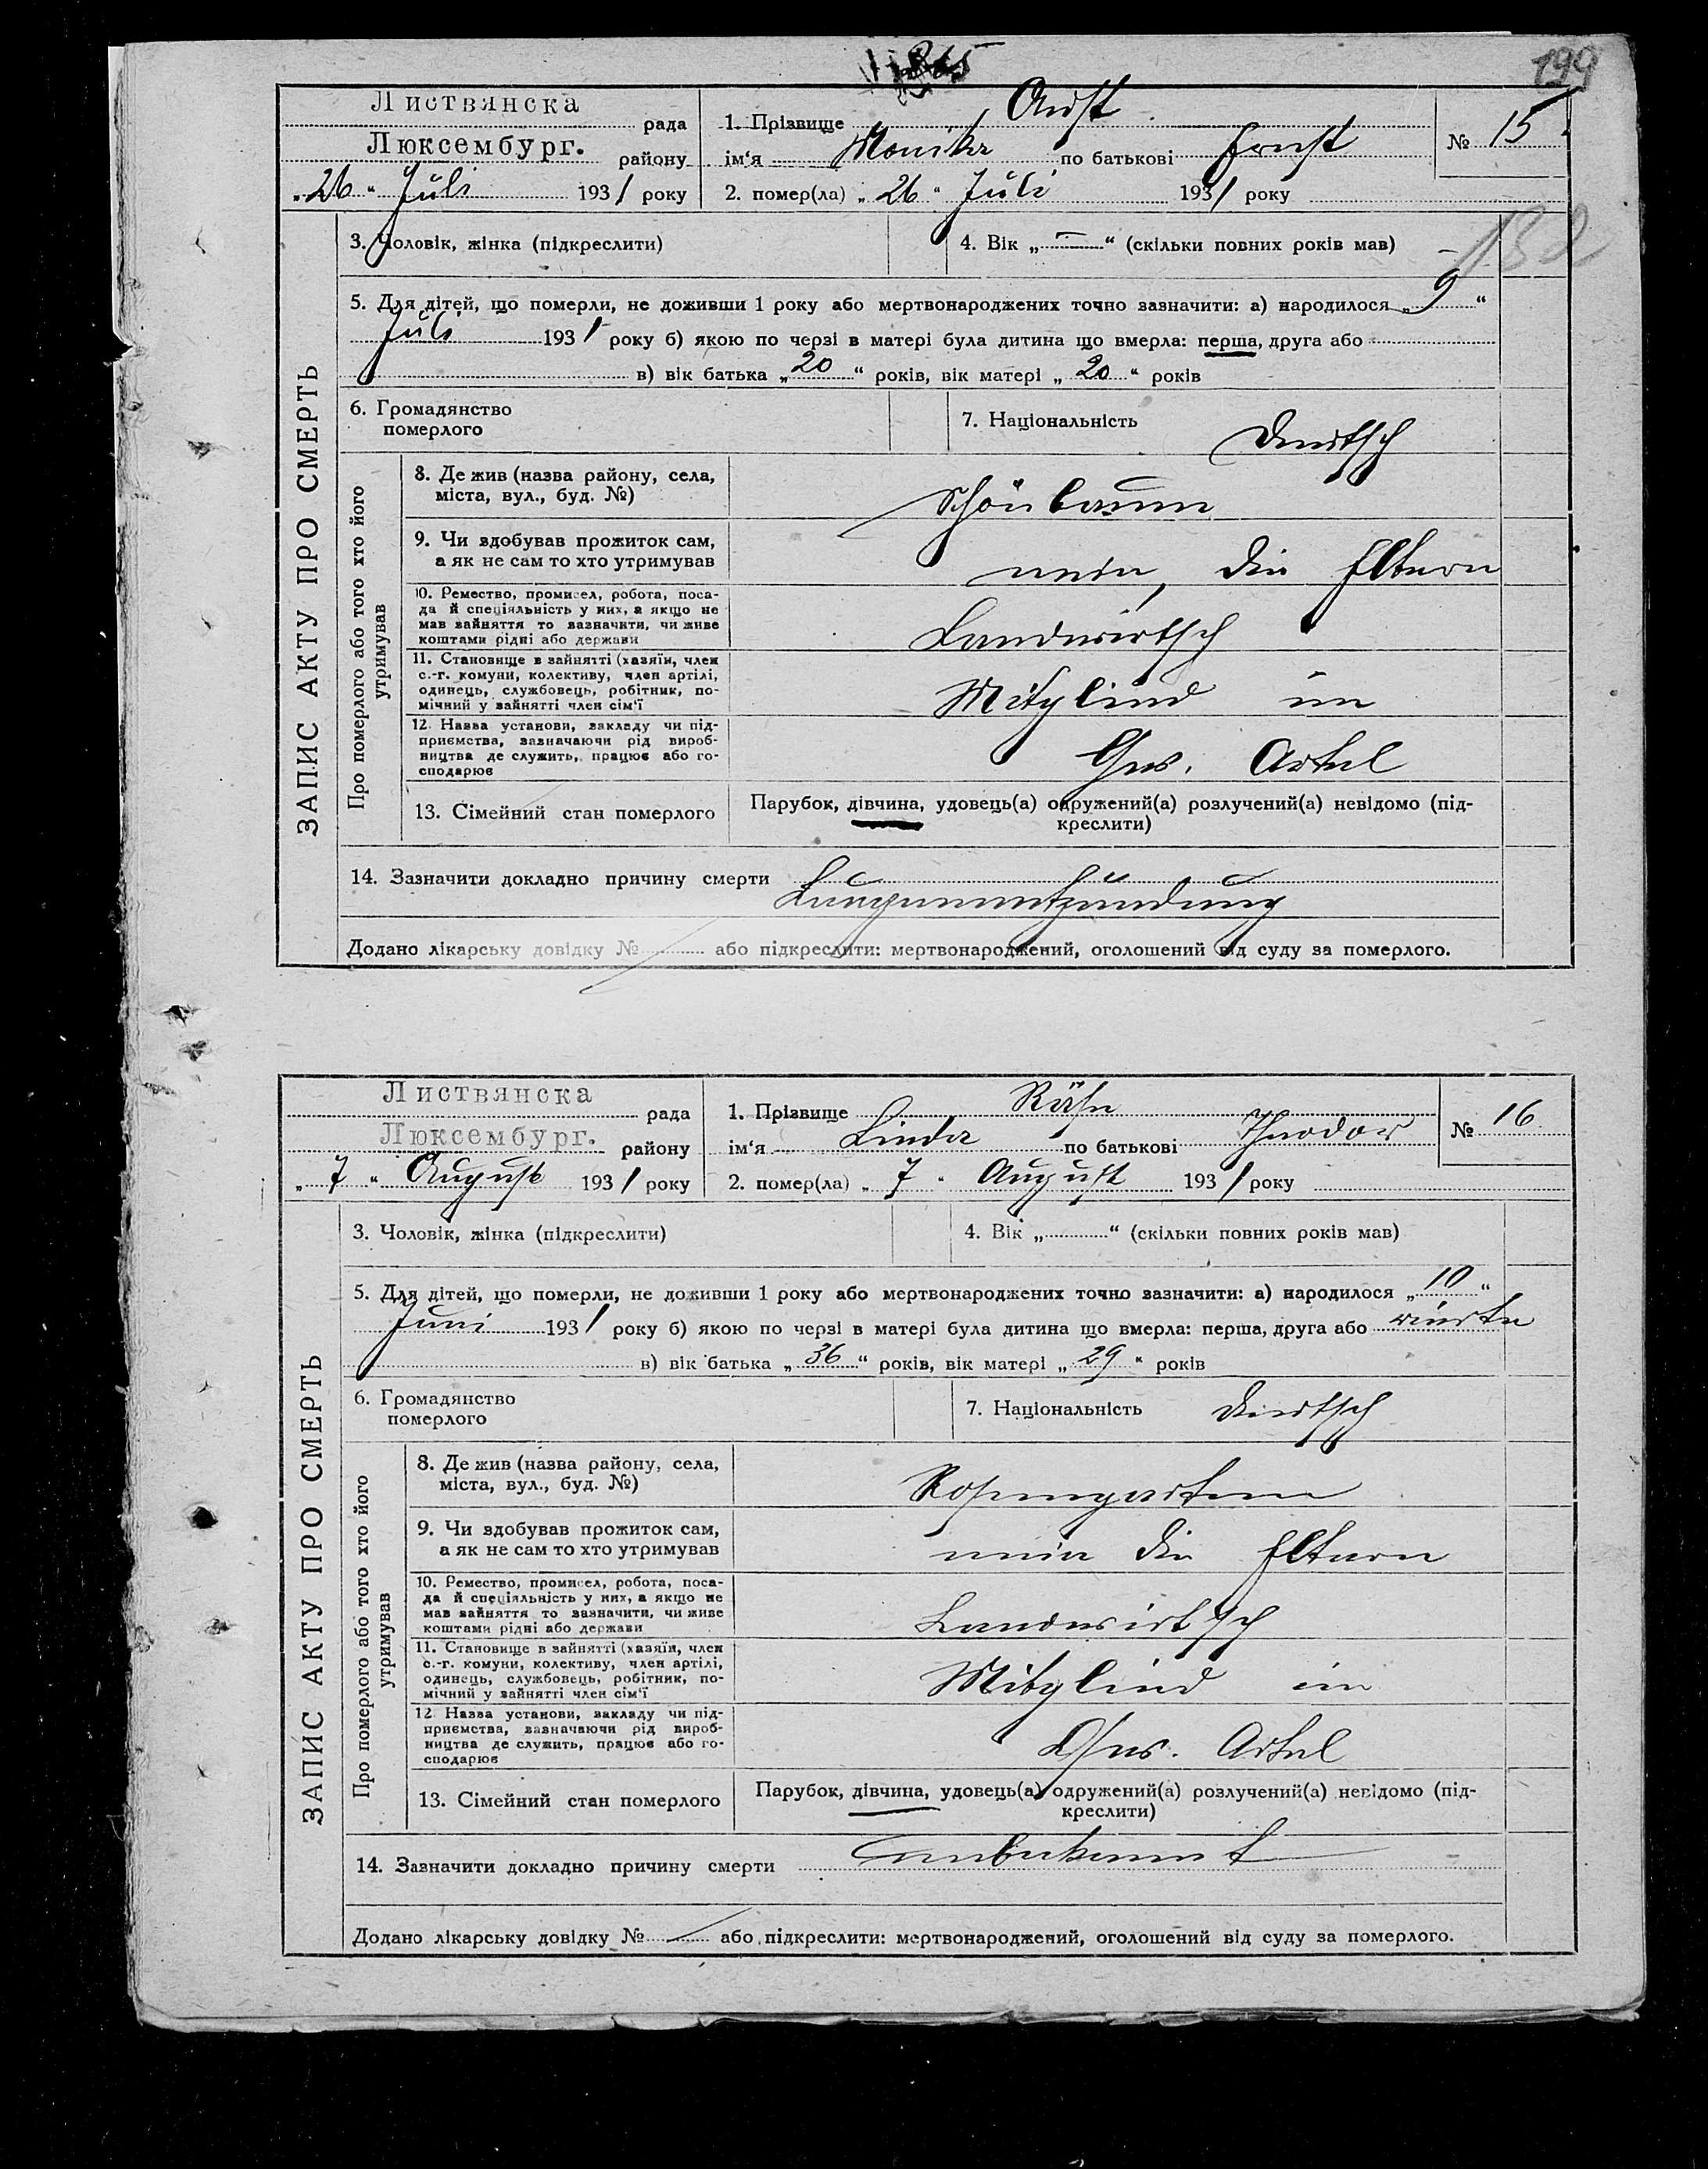 199
Листвянска рада
Люксембург. району
„26“ Juli 1931 року
1. Прізвище Arndt
ім‘я Monika по батькові Ernst
№ 15
2. помер(ла) „26“ Juli 1931 року
132
3. Чоловік, жінка (підкреслити)
4. Вік „—“ (скільки повних років мав)
5. Для дітей, що померли, не доживши 1 року або мертвонароджених точно зазначити: а) народилося „9“
Juli 1931 року б) якою по черзі в матері була дитина що вмерла: перша, друга або
в) вік батька „20“ років, вік матері „20“ років
6. Громадянство
померлого
7. Національність Deutsch
ЗАПИС АКТУ ПРО СМЕРТЬ
Про померлого або того хто його
утримував
8. Де жив (назва району, села,
міста, вул., буд. №)
Schönbaum
9. Чи здобував прожиток сам,
а як не сам то хто утримував
nein, die Eltern
10. Ремество, промисел, робота, поса-
да й спеціяльність у них, а якщо не
мав зайняття то зазначити, чи живе
коштами рідні або держави
Landwirtsch
11. Становище в зайнятті (хазяїн, член
с.-г. комуни, колективу, член артілі,
одинець, службовець, робітник, по-
мічний у зайнятті член сім‘ї
Mitglied im
12. Назва установи, закладу чи під-
приємства, зазначаючи рід вироб-
ництва де служить, працює або го-
сподарює
Ges. Artel
13. Сімейний стан померлого
Парубок, дівчина, удовець(а) одружений(а) розлучений(а) невідомо (під-
креслити)
14. Зазначити докладно причину смерти
Lungenentzündung
Додано лікарську довідку № або підкреслити: мертвонароджений, оголошений від суду за померлого.
Листвянска рада
Люксембург. району
„7“ August 1931 року
1. Прізвище
ім‘я Linda по батькові Theodor
№ 16
2. помер(ла) „7“ August 1931 року
3. Чоловік, жінка (підкреслити)
4. Вік „“ (скільки повних років мав)
5. Для дітей, що померли, не доживши 1 року або мертвонароджених точно зазначити: а) народилося „10“
Juni 1931 року б) якою по черзі в матері була дитина що вмерла: перша, друга або vierte
в) вік батька „36“ років, вік матері „29“ років
6. Громадянство
померлого
7. Національність Deutsch
ЗАПИС АКТУ ПРО СМЕРТЬ
Про померлого або того хто його
утримував
8. Де жив (назва району, села,
міста, вул., буд. №)
Rosengarten
9. Чи здобував прожиток сам,
а як не сам то хто утримував
nein die Eltern
10. Ремество, промисел, робота, поса-
да й спеціяльність у них, а якщо не
мав зайняття то зазначити, чи живе
коштами рідні або держави
Landwirtsch
11. Становище в зайнятті (хазяїн, член
с.-г. комуни, колективу, член артілі,
одинець, службовець, робітник, по-
мічний у зайнятті член сім‘ї
Mitglied im
12. Назва установи, закладу чи під-
приємства, зазначаючи рід вироб-
ництва де служить, працює або го-
сподарює
Ges. Artel
13. Сімейний стан померлого
Парубок, дівчина, удовець(а) одружений(а) розлучений(а) невідомо (під-
креслити)
14. Зазначити докладно причину смерти unbekannt
Додано лікарську довідку № або підкреслити: мертвонароджений, оголошений від суду за померлого.